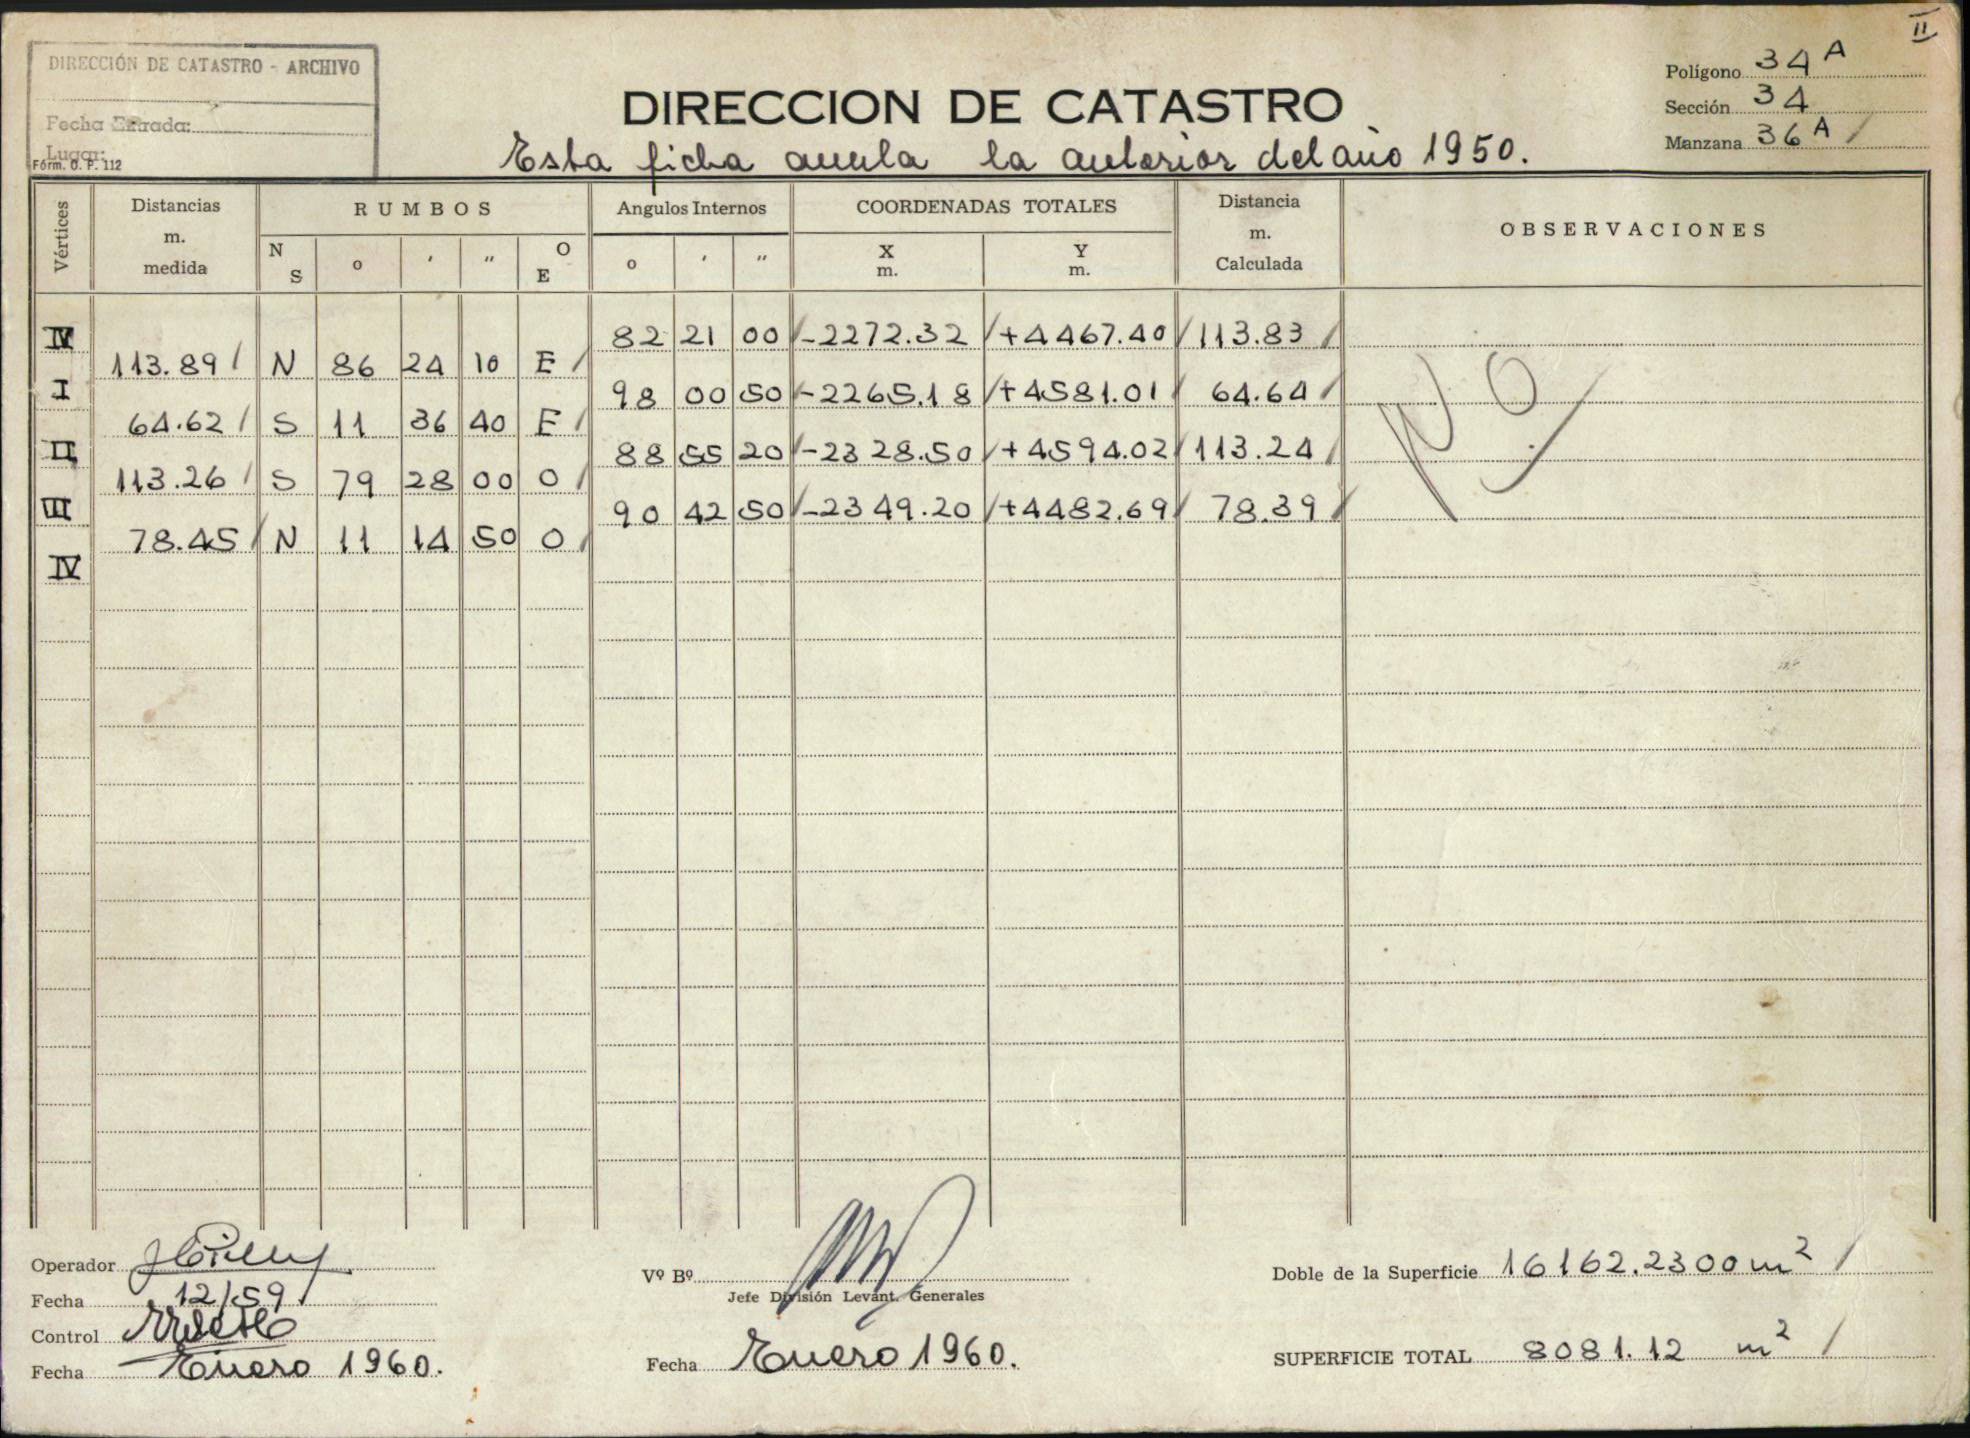 II
DIRECCIÓN DE CATASTRO - ARCHIVO
Fecha Entrada:
Lugar:
Fórm. O. P. 112
DIRECCION DE CATASTRO
Esta ficha anula la anterior del año 1950.
Polígono 34 A
Sección 34
Manzana 36 A /
Vértices Distancias m. medida RUMBOS Angulos Internos COORDENADAS TOTALES Distancia m. Calculada OBSERVACIONES
N S o ' " O E o ' " X m. Y m.
IV 82 21 00 / -2272.32 / +4467.40 / 113.83 /
113.89 / N 86 24 10 E /
I 98 00 50 / -2265.18 / +4581.01 / 64.64 /
64.62 / S 11 36 40 E /
II 88 55 20 / -2328.50 / +4594.02 / 113.24 /
113.26 / S 79 28 00 O /
III 90 42 50 / -2349.20 / +4482.69 / 78.39 /
78.45 / N 11 14 50 O /
IV
Operador
Fecha 12/59
Control
Fecha Enero 1960.
Vº Bº
Jefe División Levant. Generales
Fecha Enero 1960.
Doble de la Superficie 16162.2300 m² /
SUPERFICIE TOTAL 8081.12 m² /